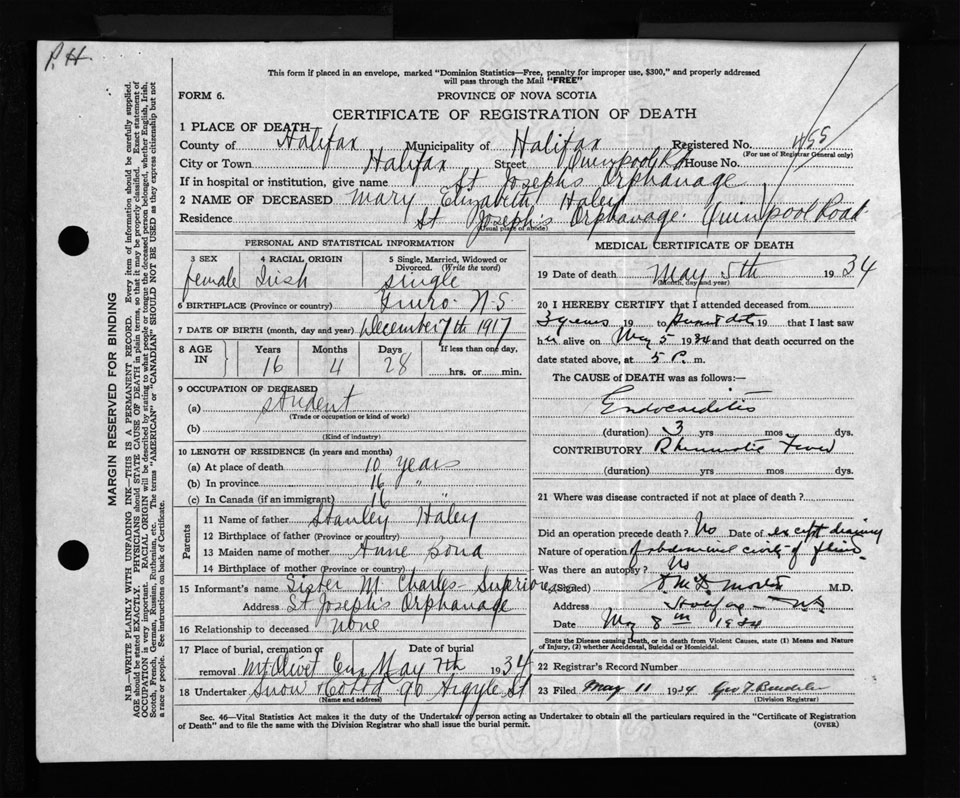 P. H.
This form if placed in an envelope, marked "Dominion Statistics—Free, penalty for improper use, $300," and properly addressed
will pass through the Mail "FREE"
FORM 6.
PROVINCE OF NOVA SCOTIA
CERTIFICATE OF REGISTRATION OF DEATH
1 PLACE OF DEATH
County of Halifax Municipality of Halifax Registered No.
(For use of Registrar General only)
City or Town Halifax Street Quinpool Rd House No.
If in hospital or institution, give name St Josephs Orphanage
2 NAME OF DECEASED Mary Elizabeth Haley
Residence St Joseph's Orphanage. Quinpool Road.
(Usual place of abode)
PERSONAL AND STATISTICAL INFORMATION
3 SEX 4 RACIAL ORIGIN 5 Single, Married, Widowed or
Divorced. (Write the word)
female Irish single
6 BIRTHPLACE (Province or country) Truro. N.S.
7 DATE OF BIRTH (month, day and year) December 7th 1917
8 AGE IN Years Months Days If less than one day,
16 4 28 hrs. or min.
9 OCCUPATION OF DECEASED
(a) student
(Trade or occupation or kind of work)
(b)
(Kind of industry)
10 LENGTH OF RESIDENCE (in years and months)
(a) At place of death 10 years
(b) In province 16 "
(c) In Canada (if an immigrant) 16 "
Parents
11 Name of father Stanley Haley
12 Birthplace of father (Province or country)
13 Maiden name of mother Anne Bona
14 Birthplace of mother (Province or country)
15 Informant's name Sister M. Charles - Superioress
Address St Joseph's Orphanage
16 Relationship to deceased none
17 Place of burial, cremation or Date of burial
removal Mt Olivet Cem May 7th 1934
18 Undertaker Snow & Co Ltd 90 Argyle St
(Name and address)
MEDICAL CERTIFICATE OF DEATH
19 Date of death May 5th 1934
(Month, day and year)
20 I HEREBY CERTIFY that I attended deceased from
3 years 19 to present date 19 that I last saw
her alive on May 5 1934 and that death occurred on the
date stated above, at 5 P. m.
The CAUSE of DEATH was as follows:—
Endocarditis
(duration) 3 yrs mos dys.
CONTRIBUTORY Rheumatic Fever
(duration) yrs mos dys.
21 Where was disease contracted if not at place of death?
Did an operation precede death? No Date of except draining
Nature of operation of abdominal cavity of fluid.
Was there an autopsy? No
(Signed) M.D.
Address Halifax - N.S.
Date May 8th 1934
State the Disease causing Death, or in death from Violent Causes, state (1) Means and Nature
of Injury, (2) whether Accidental, Suicidal or Homicidal.
22 Registrar's Record Number
23 Filed May 11 1934 Geo T.
(Division Registrar)
Sec. 46—Vital Statistics Act makes it the duty of the Undertaker or person acting as Undertaker to obtain all the particulars required in the "Certificate of Registration
of Death" and to file the same with the Division Registrar who shall issue the burial permit. (OVER)
MARGIN RESERVED FOR BINDING
N.B.—WRITE PLAINLY WITH UNFADING INK—THIS IS A PERMANENT RECORD. Every item of information should be carefully supplied.
AGE should be stated EXACTLY. PHYSICIANS should STATE CAUSE OF DEATH in plain terms, so that it may be properly classified. Exact statement of
OCCUPATION is very important. RACIAL ORIGIN will be described by stating to what people or tongue the deceased person belonged, whether English, Irish,
Scotch, French, German, Russian, Ruthenian, etc. The terms "AMERICAN" or "CANADIAN" SHOULD NOT BE USED as they express citizenship but not
a race or people. See instructions on back of Certificate.